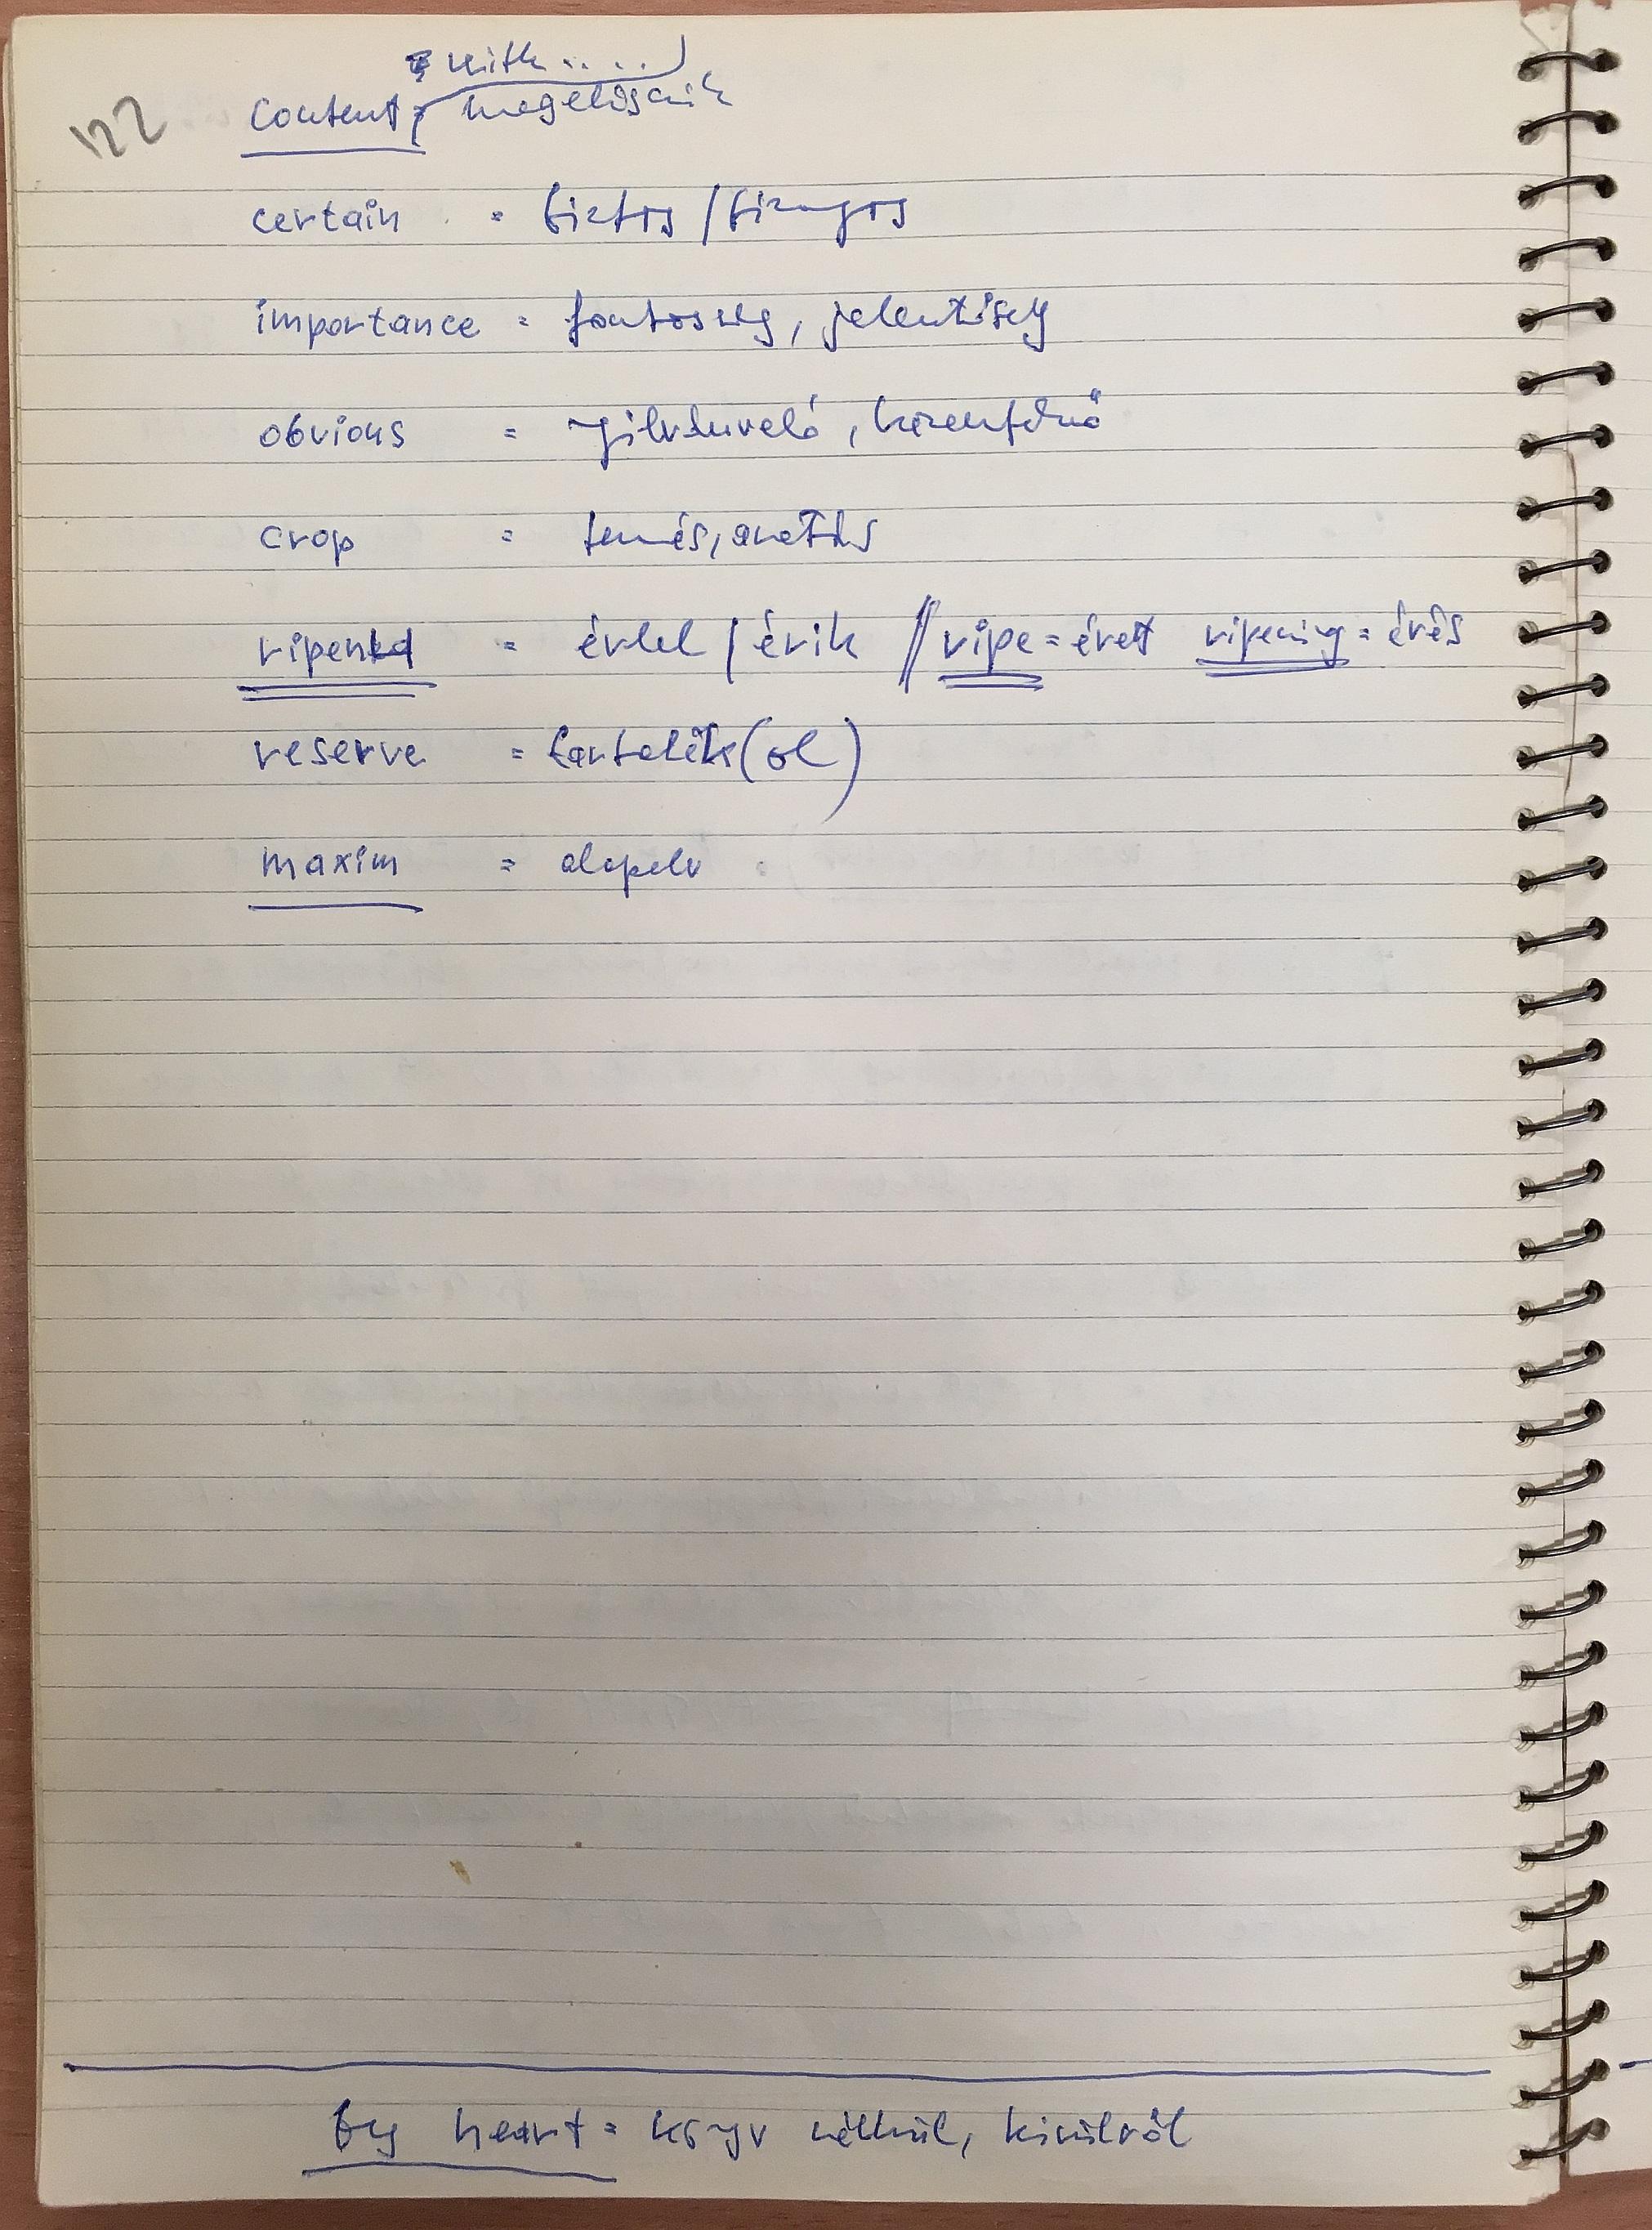 with .....)
122 content, megelégszik
certain = biztos / bizonyos
importance = fontosság, jelentőség
obvious = nyilvánvaló, kézenfekvő
crop = termés, aratás
ripen = érlel / érik // ripe = érett ripening = érés
reserve = tartalék(ol)
maxim = alapelv
by heart = könyv nélkül, kívülről